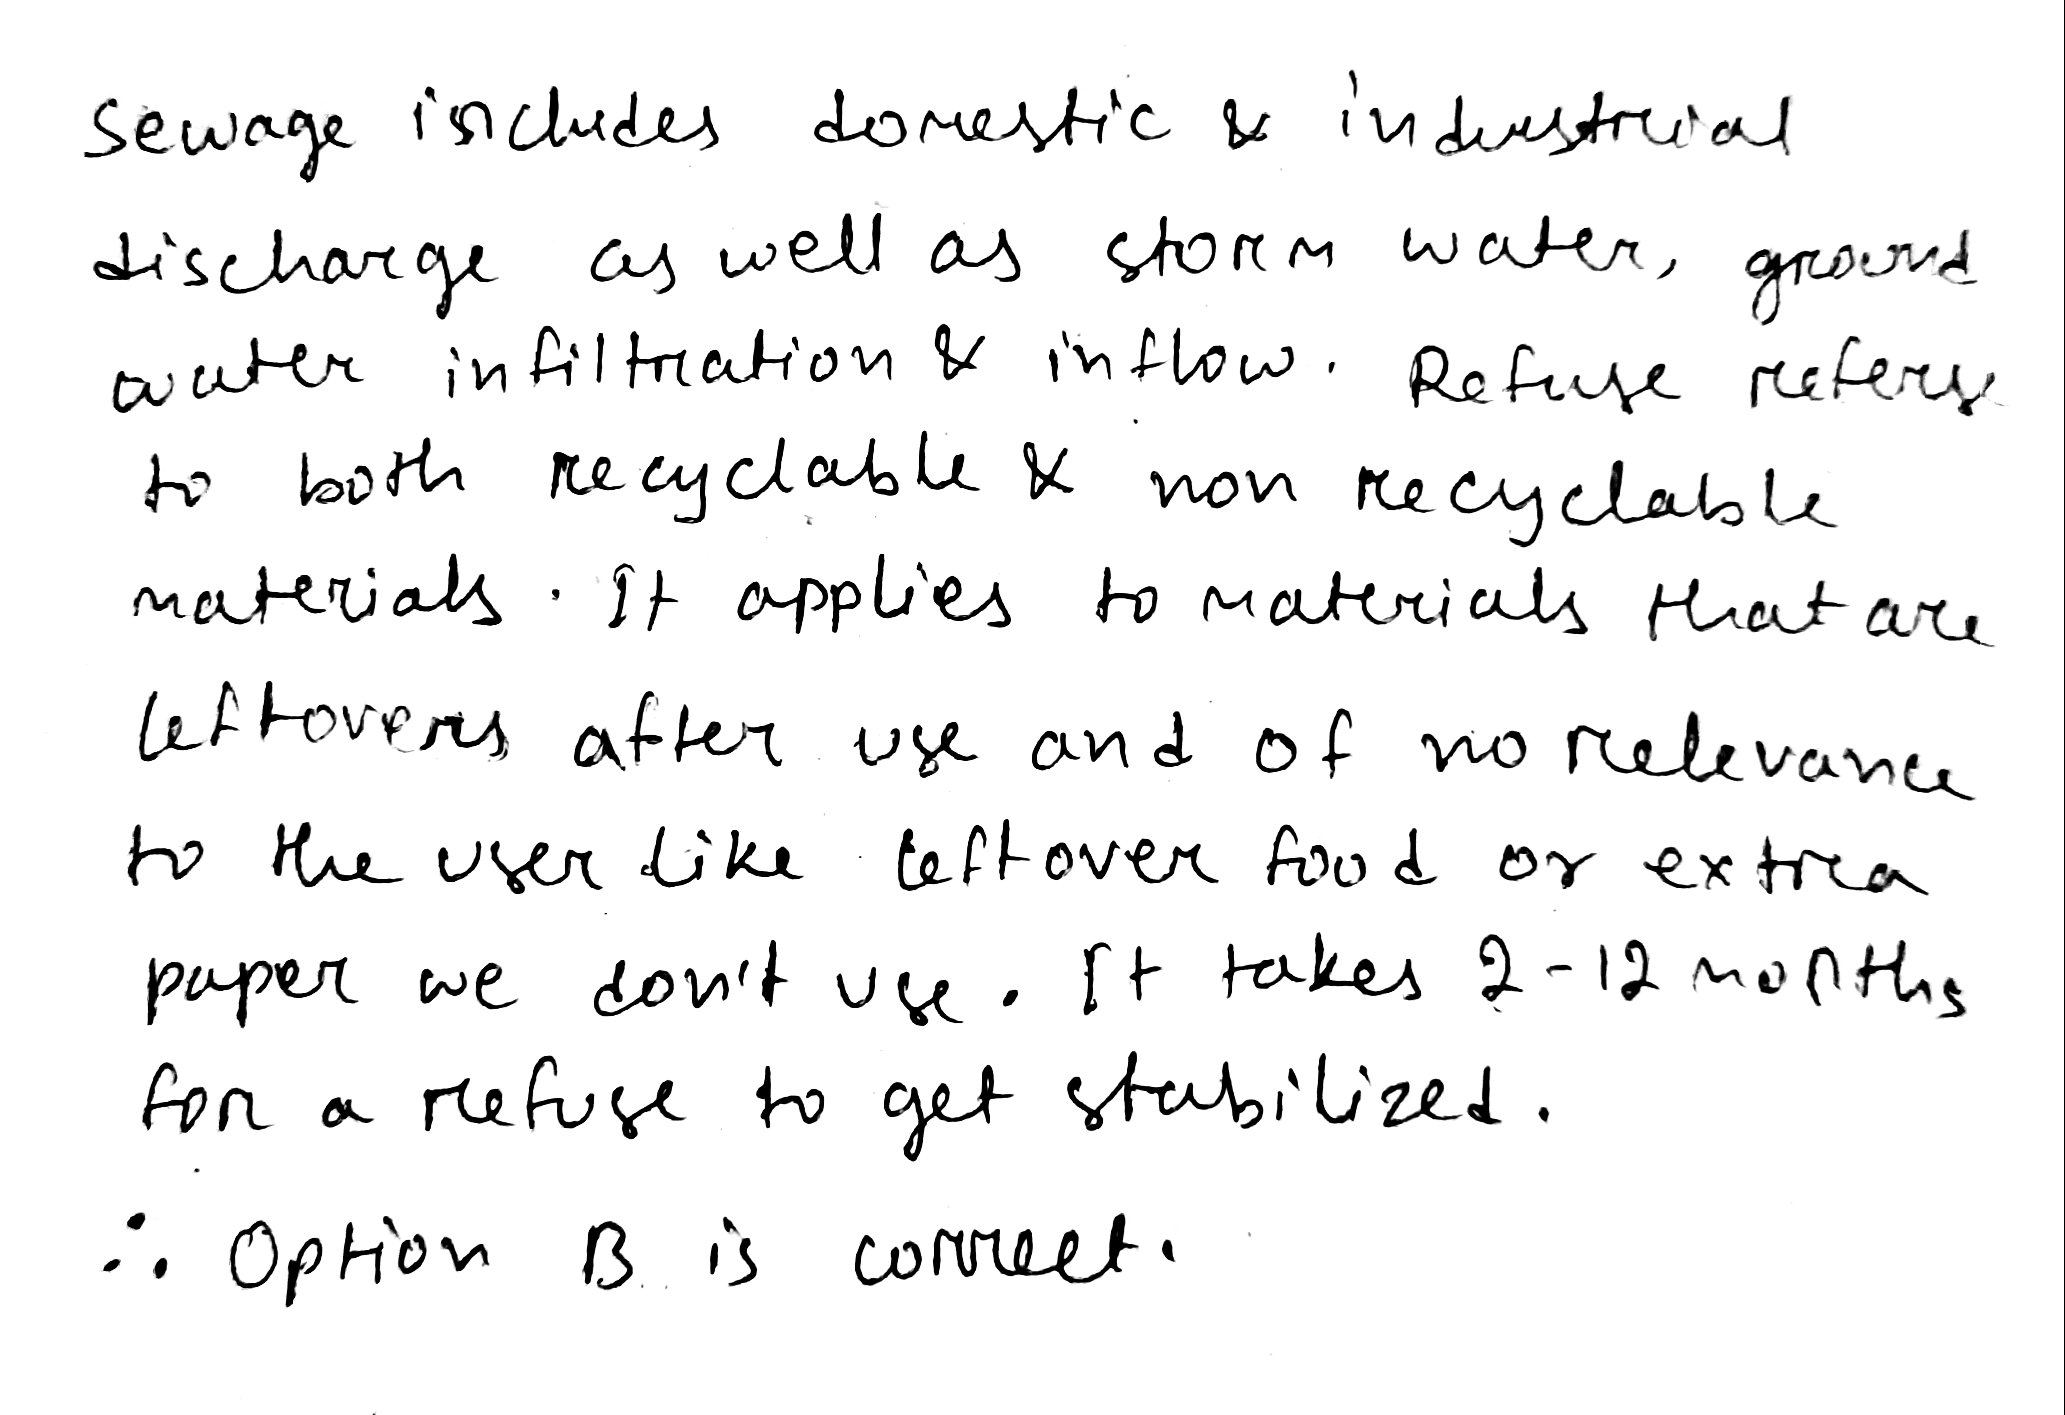 Sewage includes domestic & industrial
discharge as well as storm water, ground
water infiltration & inflow. Refuse refers
to both recyclable & non recyclable
materials. It applies to materials that are
leftovers after use and of no relevance
to the user like leftover food or extra
paper we don't use. It takes 2-12 months
for a refuse to get stabilized.
∴ Option B is correct.